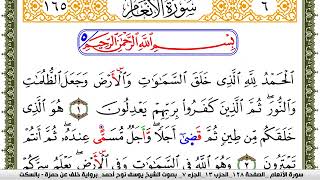 ٦ سُورَةُ الأَنْعَامِ ١٦٥
بِسْمِ اللَّهِ الرَّحْمَٰنِ الرَّحِيمِ
الْحَمْدُ لِلَّهِ الَّذِي خَلَقَ السَّمَٰوَٰتِ وَالْأَرْضَ وَجَعَلَ الظُّلُمَٰتِ
وَالنُّورَ ثُمَّ الَّذِينَ كَفَرُوا بِرَبِّهِمْ يَعْدِلُونَ ١ هُوَ الَّذِي
خَلَقَكُم مِّن طِينٍ ثُمَّ قَضَىٰ أَجَلًا وَأَجَلٌ مُّسَمًّى عِندَهُ ثُمَّ أَنتُمْ
تَمْتَرُونَ ٢ وَهُوَ اللَّهُ فِي السَّمَٰوَٰتِ وَفِي الْأَرْضِ يَعْلَمُ سِرَّكُمْ
سورة الأنعام - الصفحة ١٢٨ - الحزب ١٣ - الجزء ٧ - بصوت الشيخ يوسف نوح أحمد - برواية خلف عن حمزة - بالسكت